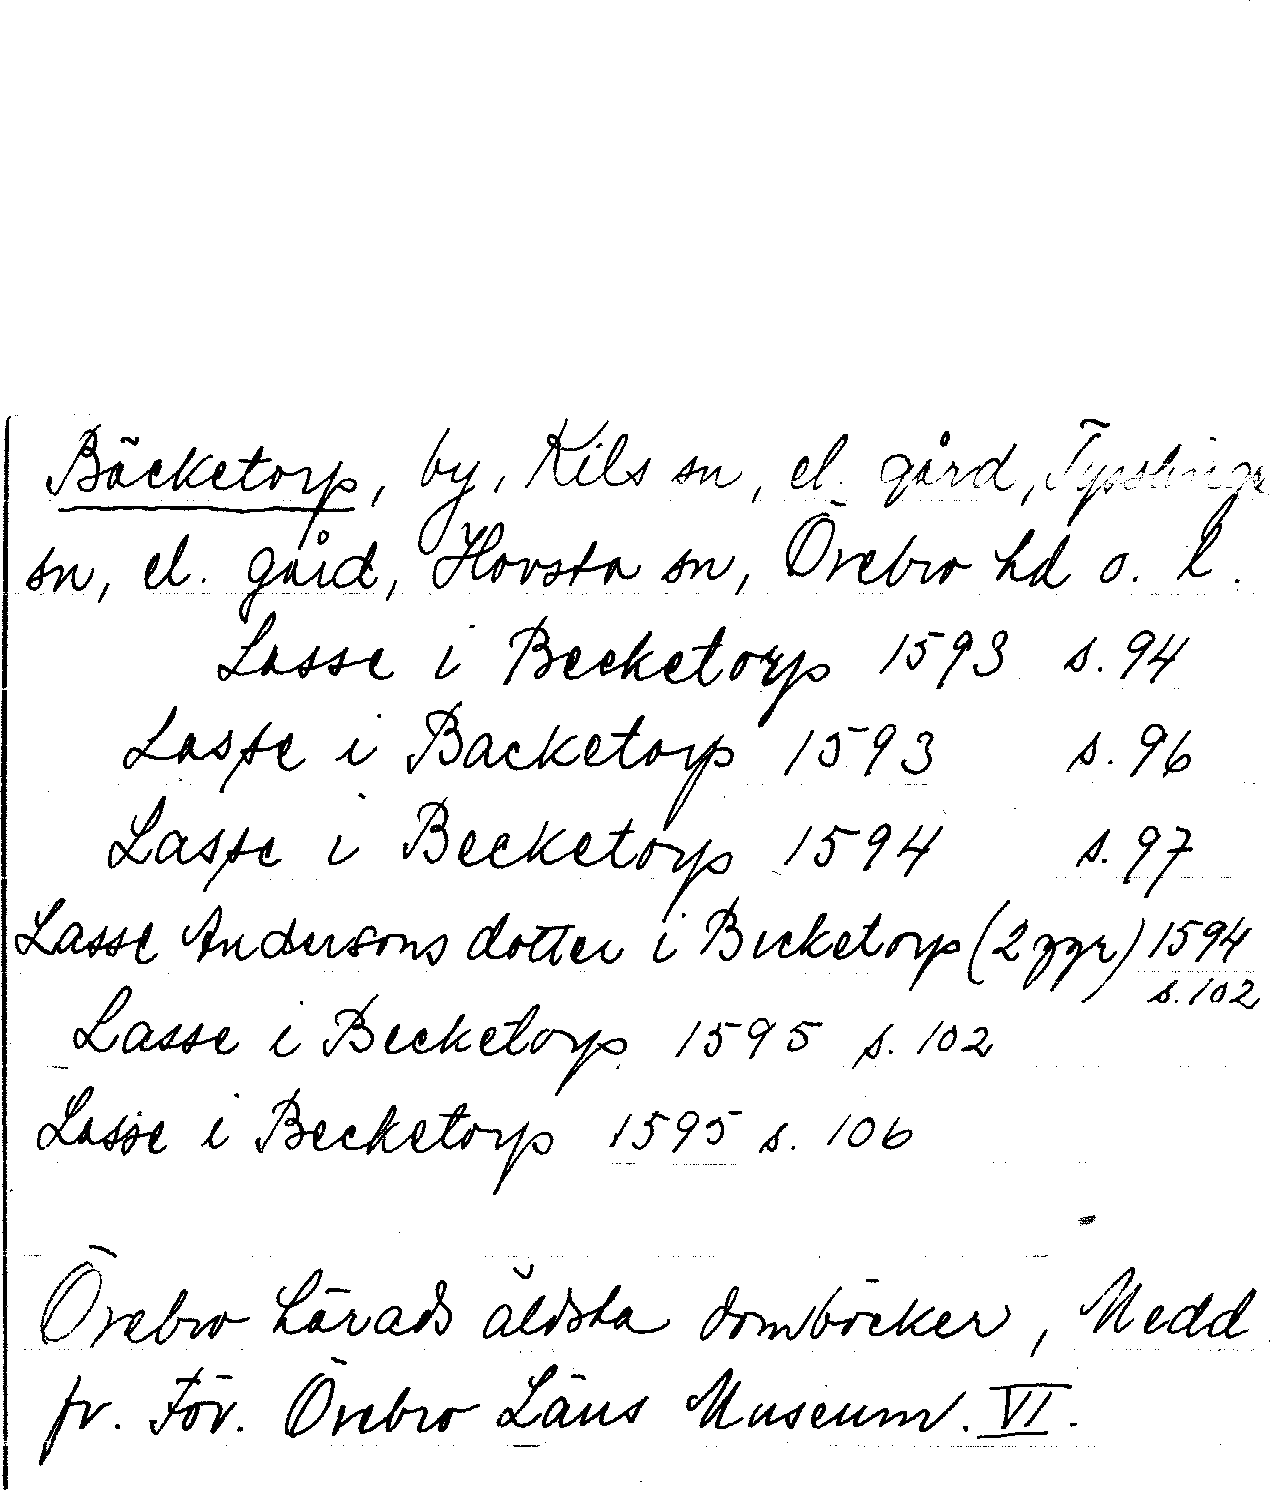 Bäcketorp, by, Kils sn, el. gård, Tysslinge
sn, el. gård, Hovsta sn, Örebro hd o. l.
Lasse i Becketorp 1593 s. 94
Lasse i Backetorp 1593 s. 96
Lasse i Becketorp 1594 s. 97
Lasse Andersons dotter i Becketorp (2 ggr) 1594
s. 102
Lasse i Becketorp 1595 s. 102
Lasse i Becketorp 1595 s. 106
Örebro härads äldsta domböcker, Medd
fr. För. Örebro Läns Museum. VI.